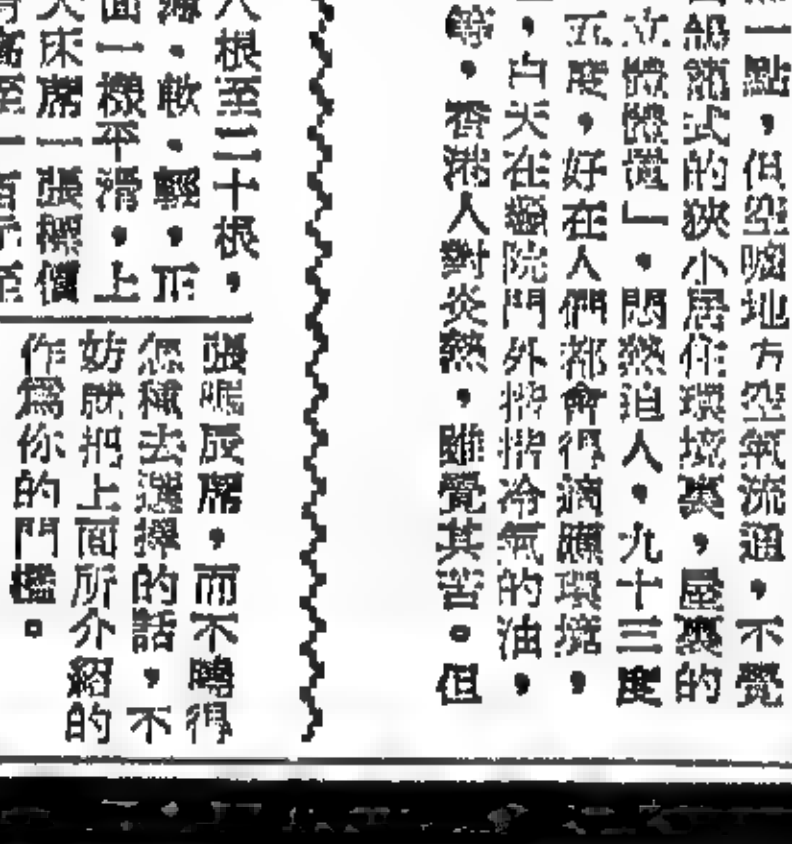 一點，但空曠地方空氣流通，不覺
鴿籠式的狹小居住環境裏，屋裏的
立體 」，悶熱迫人，九十三度
五度，好在人們都會得適應環境，
，白天在戲院門外揩揩冷氣的油，
等，香港人對炎熱，雖覺其苦。但
八根至二十根，
薄，軟，輕，而
面一樣平滑，上
大床蓆一張標價
至一百元至
張 蓆，而不曉得
怎樣去選擇的話，不
妨就把上面所介紹的
作爲你的門檻。